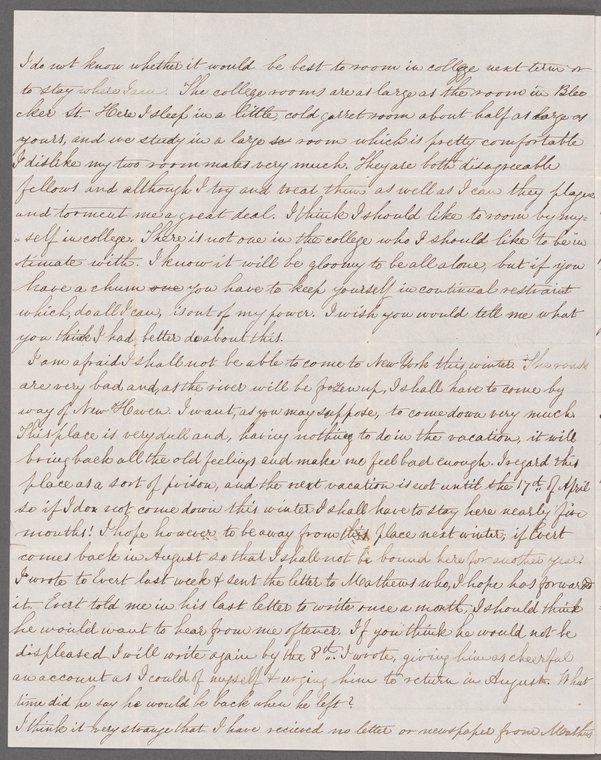 I do not know whether it would be best to room in college next term or
to stay where I am. The college rooms are as large as the room in Blee
cker St. Here I sleep in a little, cold garret room about half as large as
yours, and we study in a large so room which is pretty comfortable
I dislike my two room mates very much. They are both disagreeable
fellows and although I try and treat them as well as I can they plague
and torment me a great deal. I think I should like to room by my-
-self in college. There is not one in the college who I should like to be in
timate with. I know it will be gloomy to be all alone, but if you
have a chum one you have to keep yourself in continual restraint
which, do all I can, is out of my power. I wish you would tell me what
you think I had better do about this.
I am afraid I shall not be able to come to New York this winter. The roads
are very bad and, as the river will be frozen up, I shall have to come by
way of New Haven. I want, as you may suppose, to come down very much
This place is very dull and, having nothing to do in the vacation, it will
bring back all the old feelings and make me feel bad enough. I regard this
place as a sort of prison, and the next vacation is not until the 17th. of April
so if I do not come down this winter I shall have to stay here nearly five
months! I hope however to be away from this place next winter, if Evert
comes back in August so that I shall not be bound here for another year.
I wrote to Evert last week & sent the letter to Meathews who, I hope has forwarded
it. Evert told me in his last letter to write once a month, I should think
he would want to hear from me oftener. If you think he would not be
displeased I will write again by the 8th. I wrote, giving him as cheerful
an account as I could of myself & urging him to return in August. What
time did he say he would be back when he left?
I think it very strange that I have recieved no letter or newspaper from